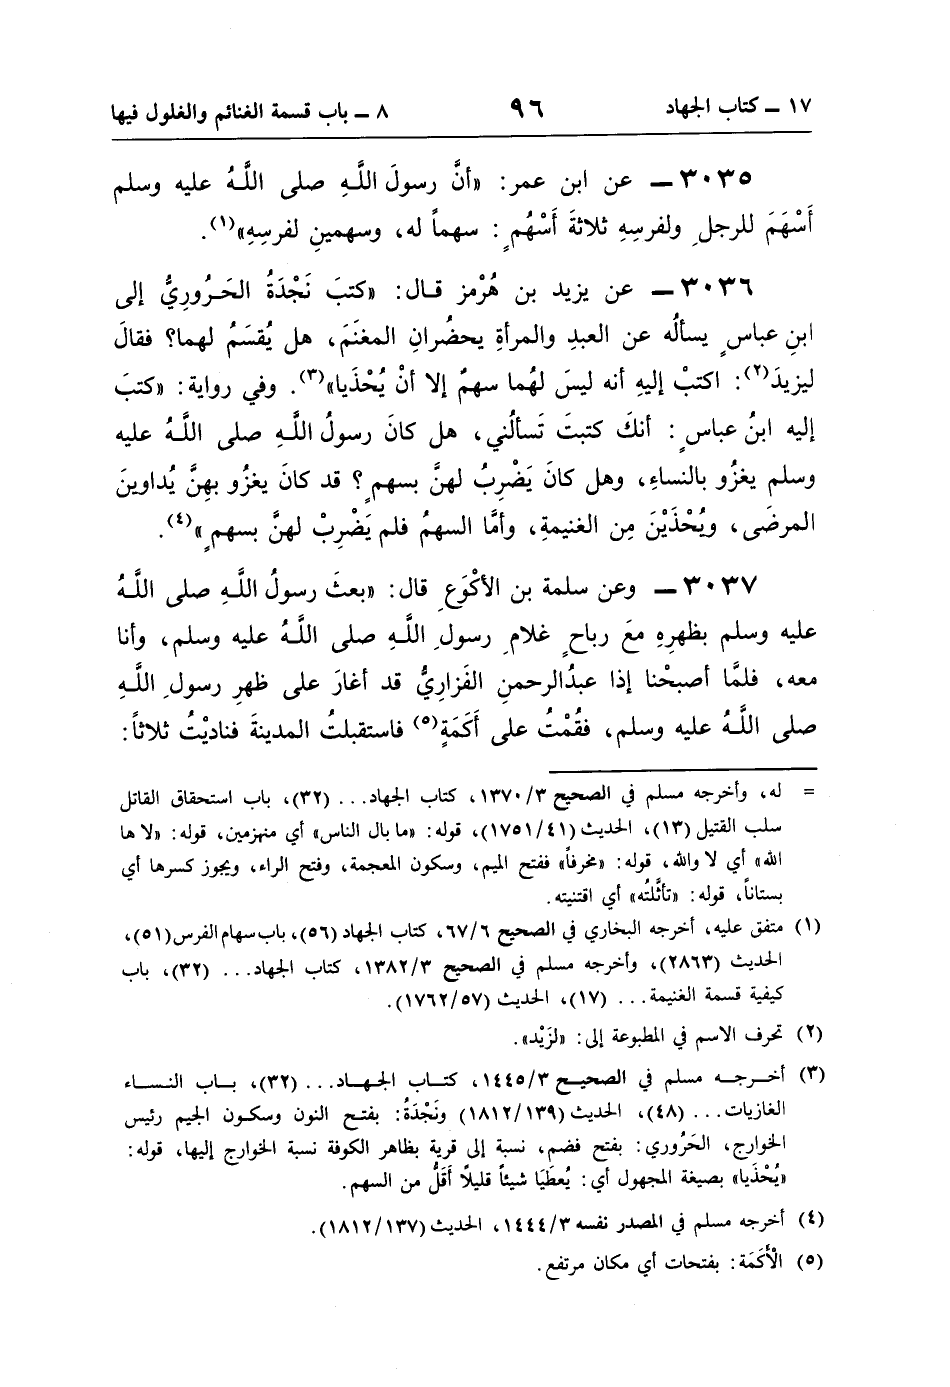 ١٧ ـ كتاب الجهاد ٩٦ ٨ ـ باب قسمة الغنائم والغلول فيها
٣٠٣٥ ـ عن ابن عمر: «أنَّ رسولَ اللَّهِ صلى اللَّهُ عليه وسلم
أَسْهَمَ للرجلِ ولفرسِهِ ثلاثةَ أَسْهُمٍ: سهماً له، وسهمينِ لفرسِهِ»(١).
٣٠٣٦ ـ عن يزيد بن هُرْمز قال: «كتبَ نَجْدَةُ الحَرُورِيُّ إلى
ابنِ عباسٍ يسألُه عن العبدِ والمرأةِ يحضُرانِ المغنَمَ، هل يُقسَمُ لهما؟ فقالَ
ليزيدَ(٢): اكتبْ إليهِ أنه ليسَ لهُما سهمٌ إلا أنْ يُحْذَيا»(٣). وفي رواية: «كتبَ
إليه ابنُ عباسٍ: أنكَ كتبتَ تَسألُني، هل كانَ رسولُ اللَّهِ صلى اللَّهُ عليه
وسلم يغزُو بالنساءِ، وهل كانَ يَضْرِبُ لهنَّ بسهمٍ؟ قد كانَ يغزُو بهِنَّ يُداوينَ
المرضَى، ويُحْذَيْنَ مِن الغنيمةِ، وأمَّا السهمُ فلم يَضْرِبْ لهنَّ بسهمٍ»(٤).
٣٠٣٧ ـ وعن سلمة بن الأكْوَعِ قال: «بعثَ رسولُ اللَّهِ صلى اللَّهُ
عليه وسلم بظهرِهِ معَ رباحٍ غلامِ رسولِ اللَّهِ صلى اللَّهُ عليه وسلم، وأنا
معه، فلمَّا أصبحْنا إذا عبدُالرحمنِ الفَزاريُّ قد أغارَ على ظهرِ رسولِ اللَّهِ
صلى اللَّهُ عليه وسلم، فقُمْتُ على أَكَمَةٍ(٥) فاستقبلتُ المدينةَ فناديْتُ ثلاثاً:
= له، وأخرجه مسلم في الصحيح ١٣٧٠/٣، كتاب الجهاد... (٣٢)، باب استحقاق القاتل
سلب القتيل (١٣)، الحديث (١٧٥١/٤١)، قوله: «ما بال الناس» أي منهزمين، قوله: «لا ها
الله» أي لا والله، قوله: «مخرفاً» ففتح الميم، وسكون المعجمة، وفتح الراء، ويجوز كسرها أي
بستاناً، قوله: «تأثَّلتُه» أي اقتنيته.
(١) متفق عليه، أخرجه البخاري في الصحيح ٦٧/٦، كتاب الجهاد (٥٦)، باب سهام الفرس (٥١)،
الحديث (٢٨٦٣)، وأخرجه مسلم في الصحيح ١٣٨٢/٣، كتاب الجهاد... (٣٢)، باب
كيفية قسمة الغنيمة... (١٧)، الحديث (١٧٦٢/٥٧).
(٢) تحرف الاسم في المطبوعة إلى: «لزَيْد».
(٣) أخرجه مسلم في الصحيح ١٤٤٥/٣، كتاب الجهاد... (٣٢)، باب النساء
الغازيات... (٤٨)، الحديث (١٨١٢/١٣٩) ونَجْدَةُ: بفتح النون وسكون الجيم رئيس
الخوارج، الحَرُوري: بفتح فضم، نسبة إلى قرية بظاهر الكوفة نسبة الخوارج إليها، قوله:
«يُحْذَيا» بصيغة المجهول أي: يُعطَيَا شيئاً قليلاً أَقَلُّ من السهم.
(٤) أخرجه مسلم في المصدر نفسه ١٤٤٤/٣، الحديث (١٨١٢/١٣٧).
(٥) الْأَكَمَة: بفتحات أي مكان مرتفع.